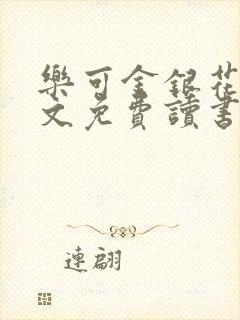 樂可金銀花
文免費讀書
連翩